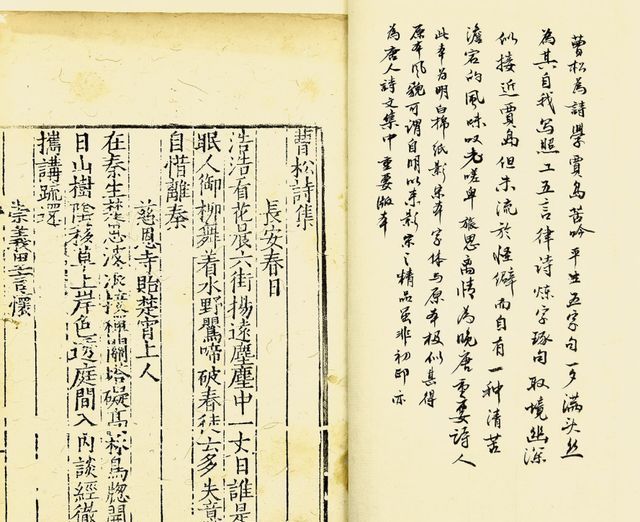 曹松為詩學賈島苦吟平生五字句一夕滿头丝
為其自我写照工五言律诗炼字琢句取境幽深
似接近賈島但未流於怪僻而自有一种清苦
澹宕的風味叹老嗟卑旅思离情為晚唐重要诗人
此本为明白棉纸影宋本字体与原本极似具得
原本风貌可谓自明以来影宋之精品虽非初印亦
為唐人詩文集中重要版本
曹松詩集
長安春日
浩浩看花晨六街揚遠塵塵中一丈日誰是
眠人御柳舞着水野鶯啼破春徒云多失意
自惜離秦
慈恩寺貽楚霄上人
在秦生楚思波浪接禪關塔礙高林鳥窓開
日山樹陰移草上岸色透庭間入內談經徹
攜講疏還
崇義里言懷